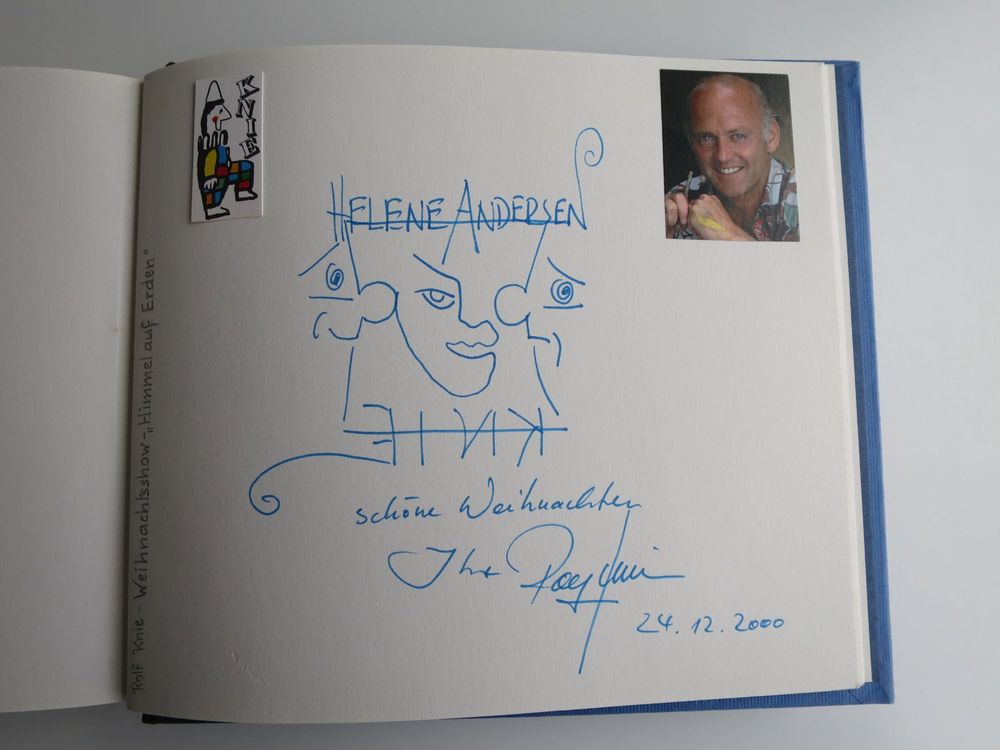 KNIE
HELENE ANDERSEN
KNIE
schöne Weihnachten
Ihr Rolf Knie
24.12.2000
Rolf Knie - Weihnachtsshow - „Himmel auf Erden“